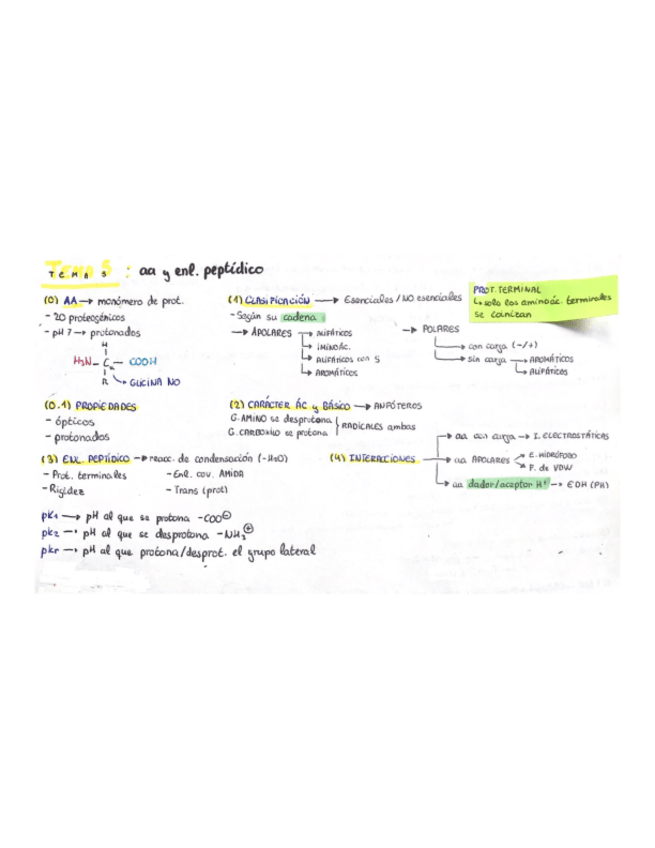 TEMA 5 : aa y enl. peptídico
(0) AA → monómero de prot.
- 20 proteogénicos
- pH 7 → protonados
H
H₂N - C - COOH
R → GLICINA NO
(1) CLASIFICACIÓN → Esenciales / NO esenciales
- Según su cadena :
→ APOLARES → ALIFÁTICOS
→ IMINOÁC.
→ ALIFÁTICOS con S
→ AROMÁTICOS
→ POLARES
→ con carga (-/+)
→ sin carga → AROMÁTICOS
→ ALIFÁTICOS
PROT. TERMINAL
↳ solo los aminoác. terminales
se ionizan
(0.1) PROPIEDADES
- ópticos
- protonados
(2) CARÁCTER ÁC y BÁSICO → ANFÓTEROS
G. AMINO se desprotona
G. CARBOXILO se protona
RADICALES ambas
(3) ENL. PEPTÍDICO → reacc. de condensación (-H₂O)
- Prot. terminales
- Enl. cov. AMIDA
- Rigidez
- Trans (prot)
(4) INTERACCIONES
→ aa con carga → I. ELECTROSTÁTICAS
→ aa APOLARES → E. HIDRÓFOBO
→ F. de VDW
→ aa dador/aceptor H⁺ → EDH (PH)
pK₁ → pH al que se protona -COO⊖
pK₂ → pH al que se desprotona -NH₃⊕
pKr → pH al que protona/desprot. el grupo lateral